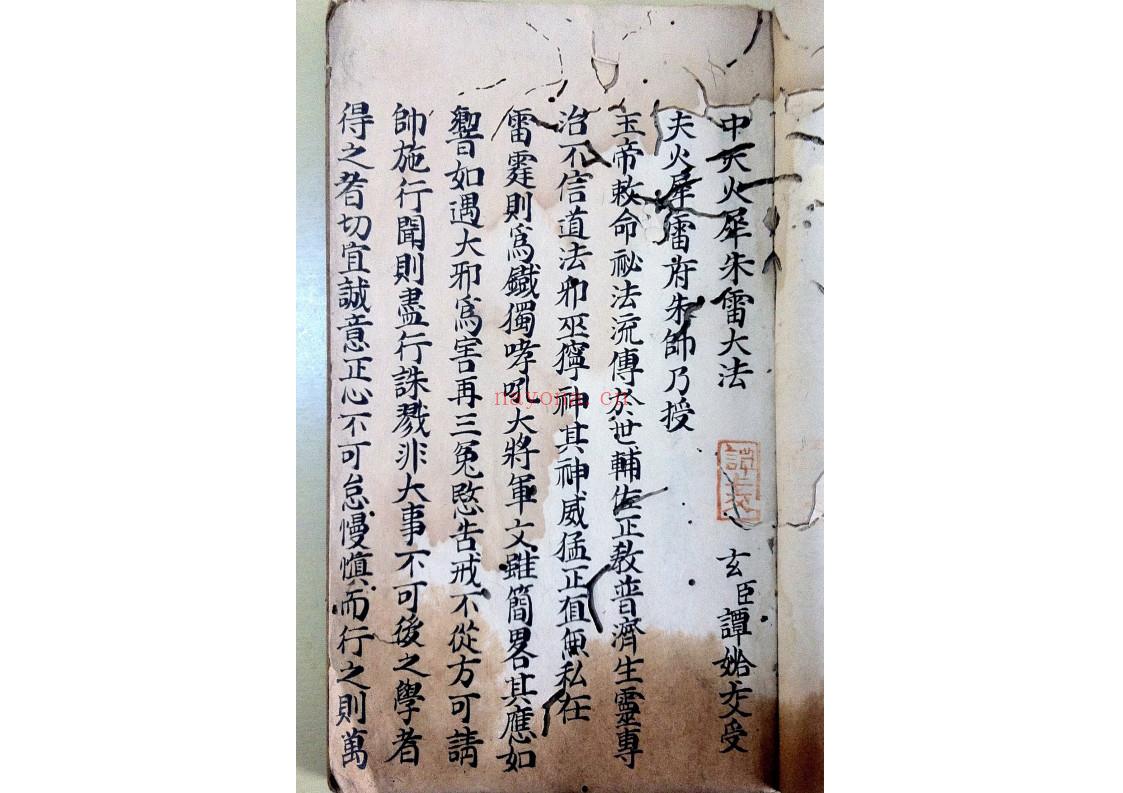 中天火犀朱雷大法
玄臣譚始交受
夫火犀雷府朱帥乃授
玉帝敕命祕法流傳於世輔佐正教普濟生靈專
治不信道法邪巫獰神其神威猛正直無私在
雷霆則爲鐵獨哮吼大將軍文雖簡畧其應如
響如遇大邪爲害再三冤愍告戒不從方可請
帥施行聞則盡行誅戮非大事不可後之學者
得之者切宜誠意正心不可怠慢慎而行之則萬
nayona.cn